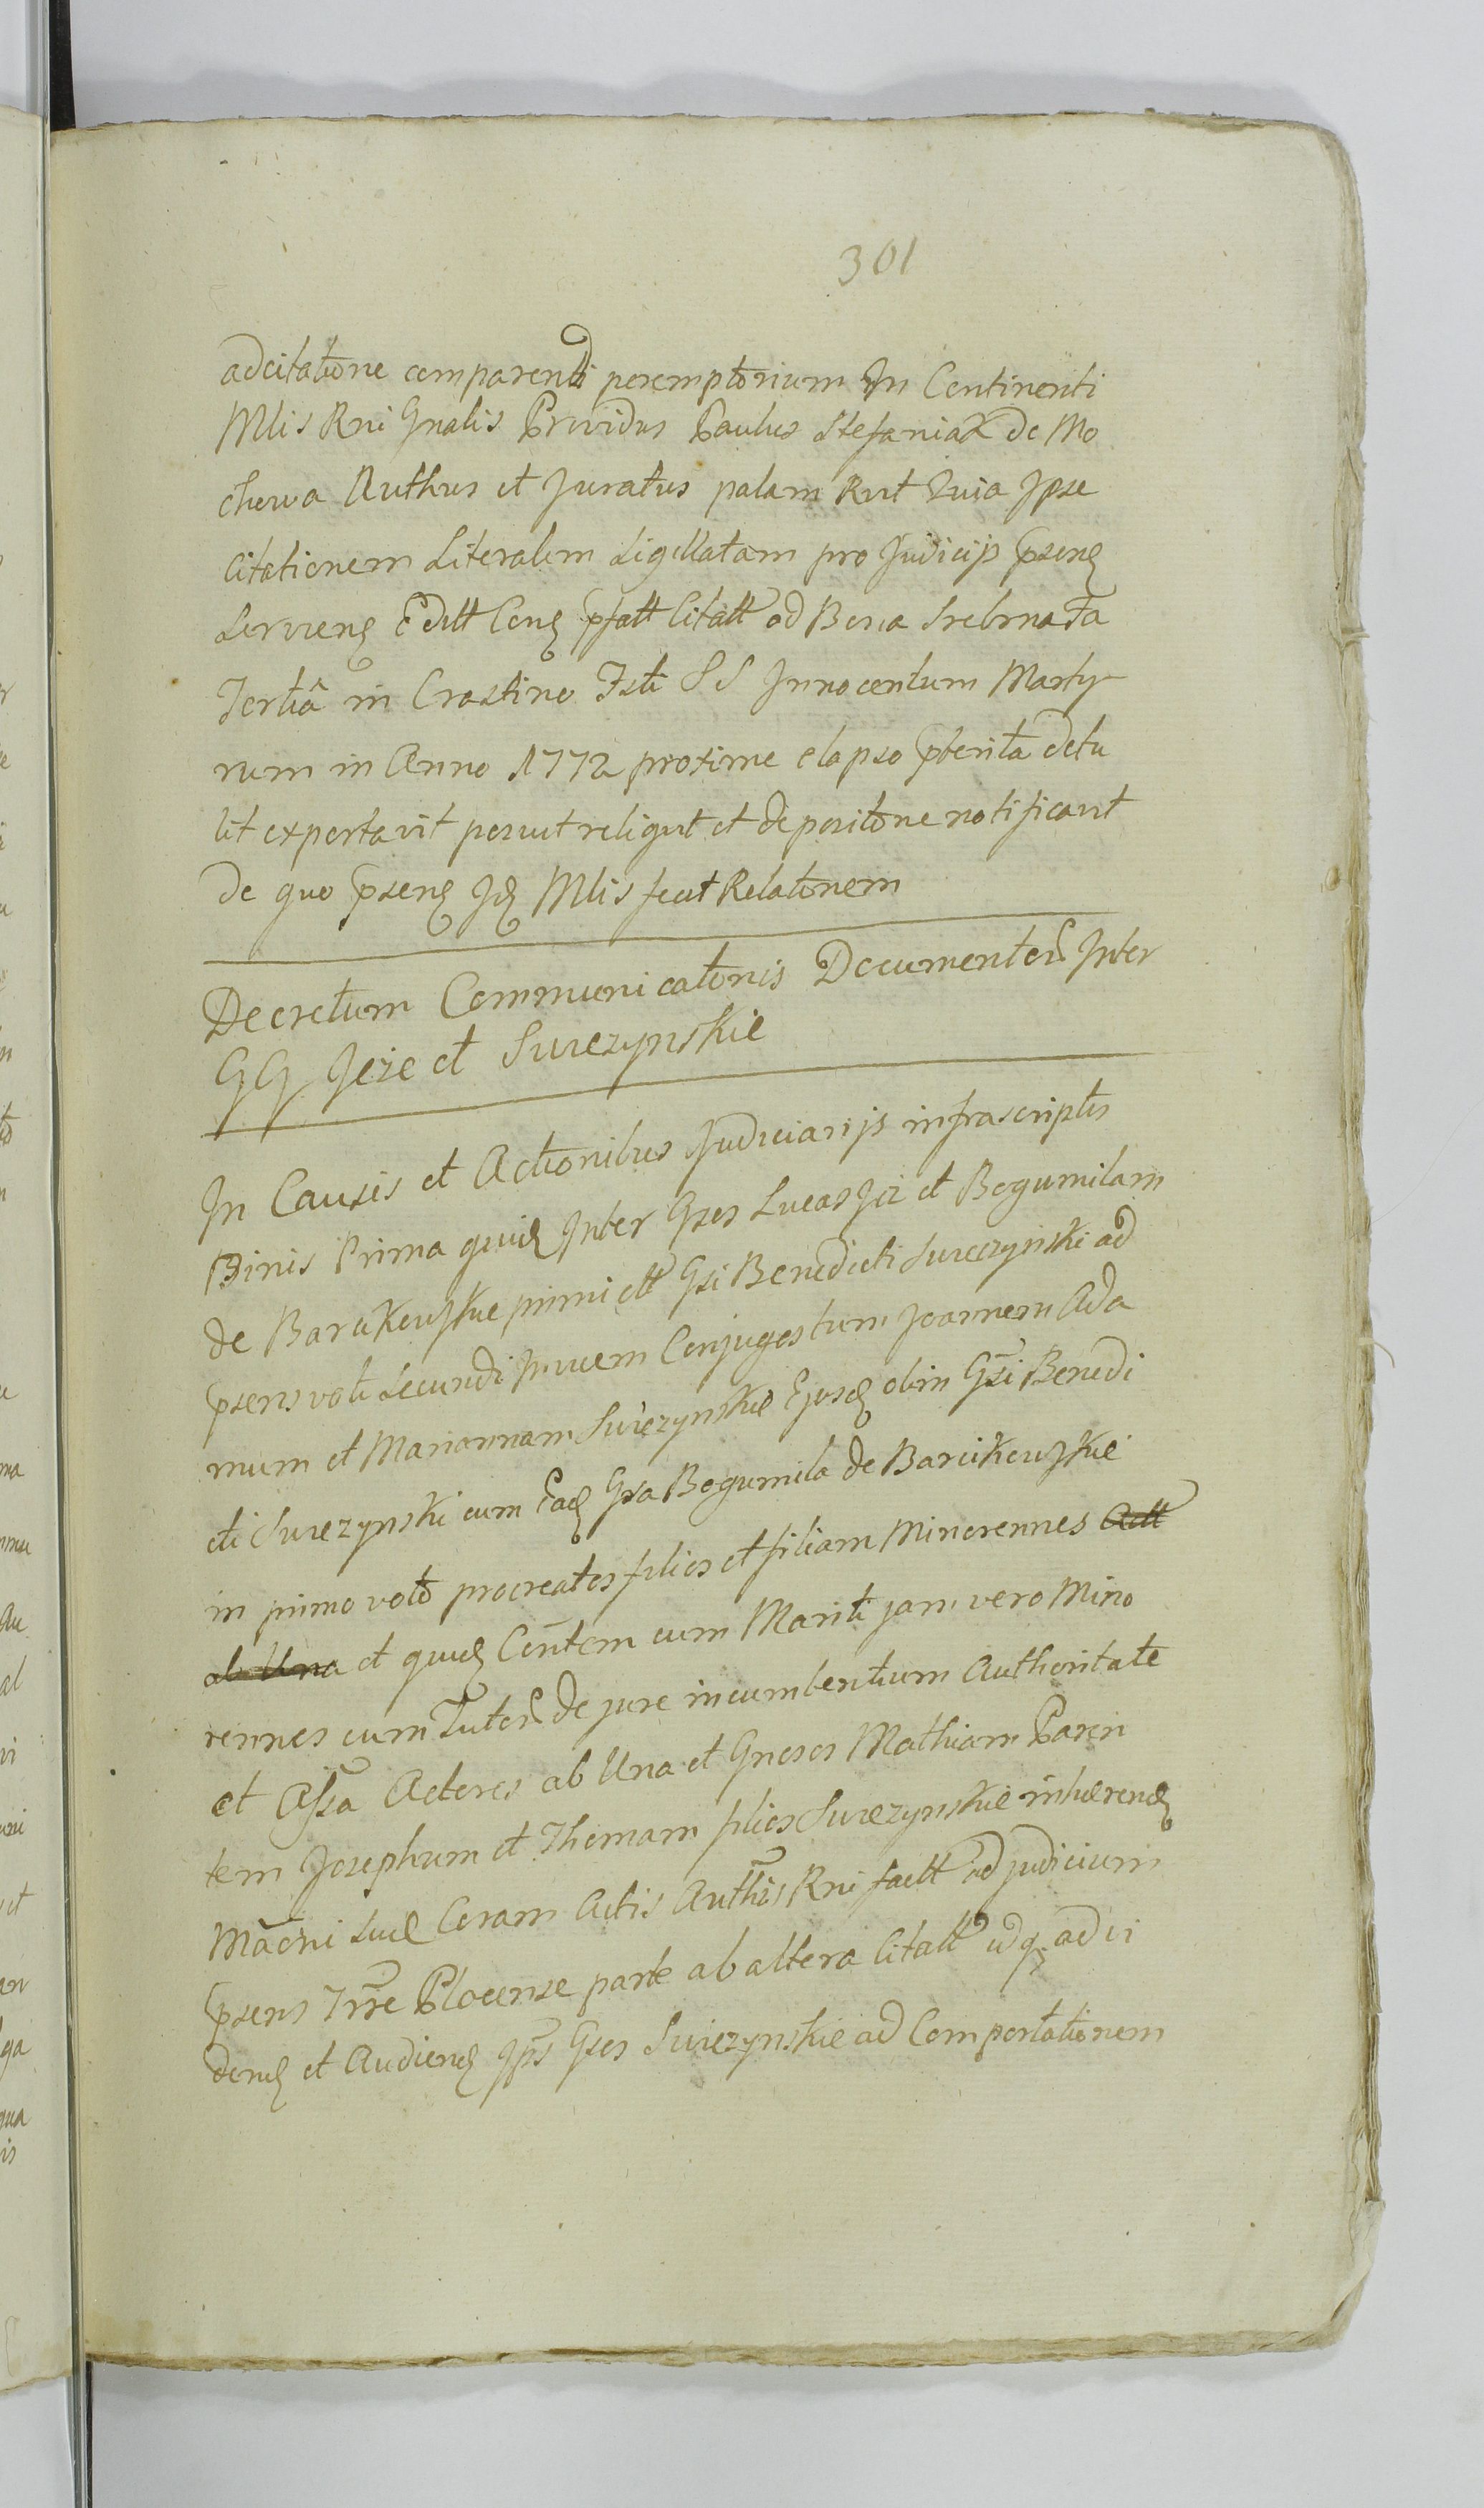 301
adcitatione comparendi peremptorium In Continenti
Mlis Rni Gnalis Providus Paulus Stefaniak de Mo
chowa Authus et Juratus palam Rvt Quia Ipse
Citationem Literalem Sigillatam pro Judicijs psens
Servien Edtt Con pfatt Citatt ad Bona Srebrna Ta
Tertiâ in Crastino Fsti SS Innocentum Marty-
rum in Anno 1772 proxime elapso pterita detu
lit exportavit posuit reliqvt et depositone notificavt
de quo psens Id Mlis fecit Relatonem
Decretum Communicatonis Documentor Inter
GG Jeże et Swiezynskie
In Causis et Actionibus Judiciarijs infrascriptis
Binis Prima quid Inter Gsos Lucas Jeż et Bogumilam
de Barcikowskie primi ett Gsi Benedicti Swiezynski ad
psens voti secundi Invicem Conjuges tum Joannem Ada
mum et Mariannam Swiezynskie Ejusd olim Gsi Benedi
cti Swiezynski cum Ead Gsa Bogumila de Barcikowskie
in primo voto procreatos filios et filiam Minorennes Actt
ab Una et quid Contem cum Mariti jam vero Mino
rennes cum Tutor de jure incumbentium Authoritate
et Assa Actores ab Una et Gnosos Mathiam Paren
tem Josephum et Thomam filios Swiezynskie inhærend
Maoni suæ Coram Actis Authis Rni factt ad judicium
psens Trre Plocense parte ab altera Citatt idq advi
dend et Audiend Ips Gsos Swiezynskie ad Comportationem